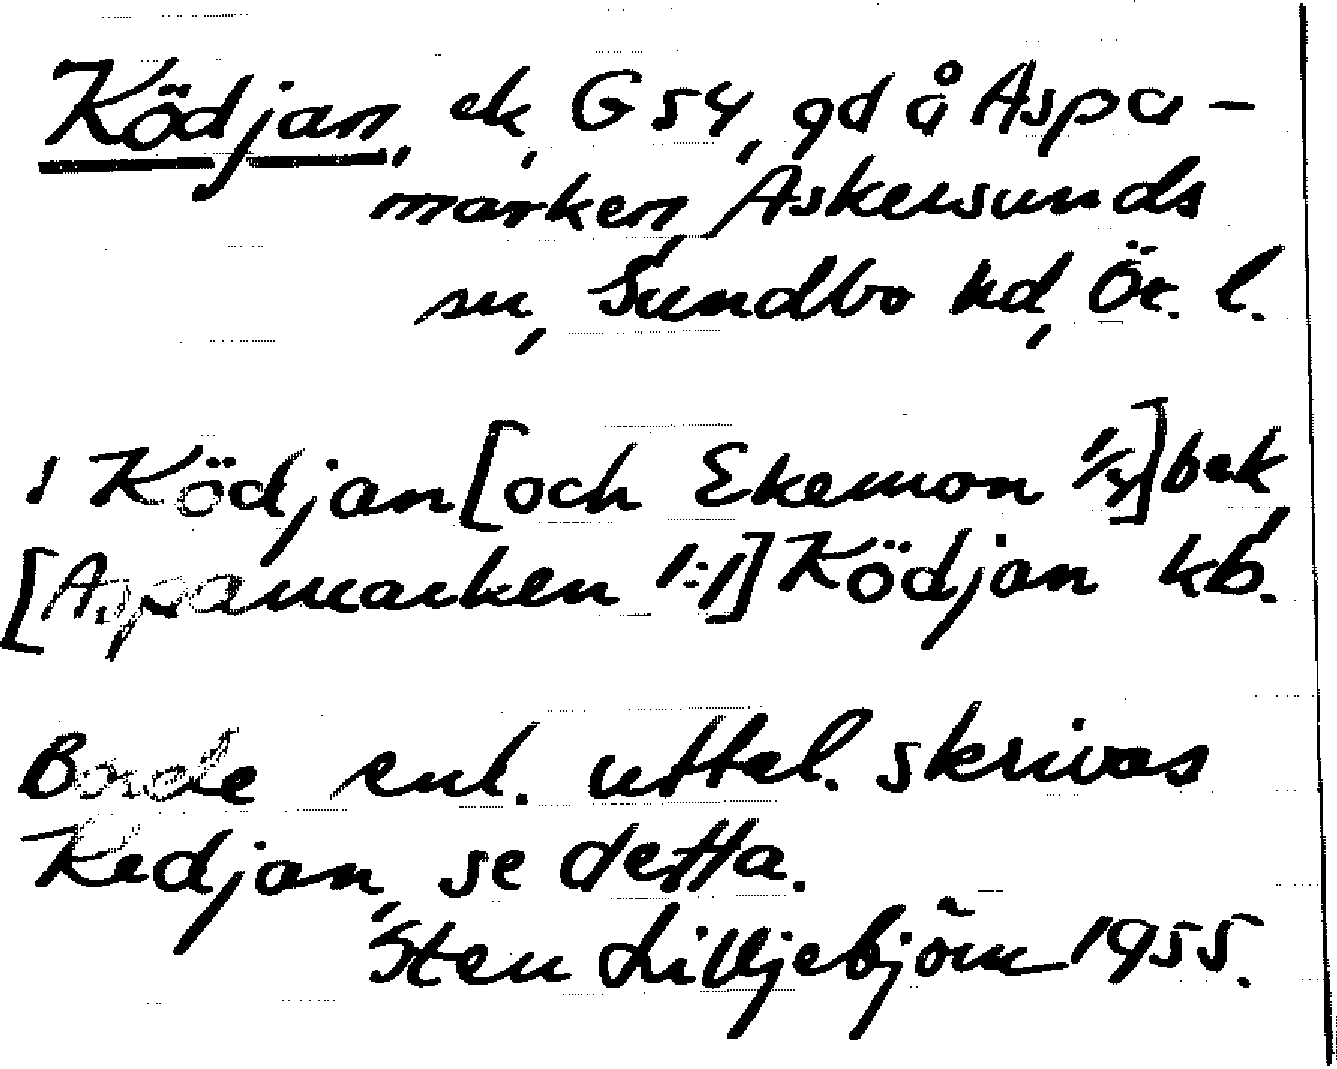 Ködjan, ek, G 54, gd å Aspa-
marken, Askersunds
sn, Sundbo hd, Ör. l.
1 Ködjan [och Ekemon 1/3] bek,
[Aspamarken 1:1] Ködjan kb.
Borde enl. uttal. skrivas
Kedjan, se detta.
Sten Lilljebjörn 1955.